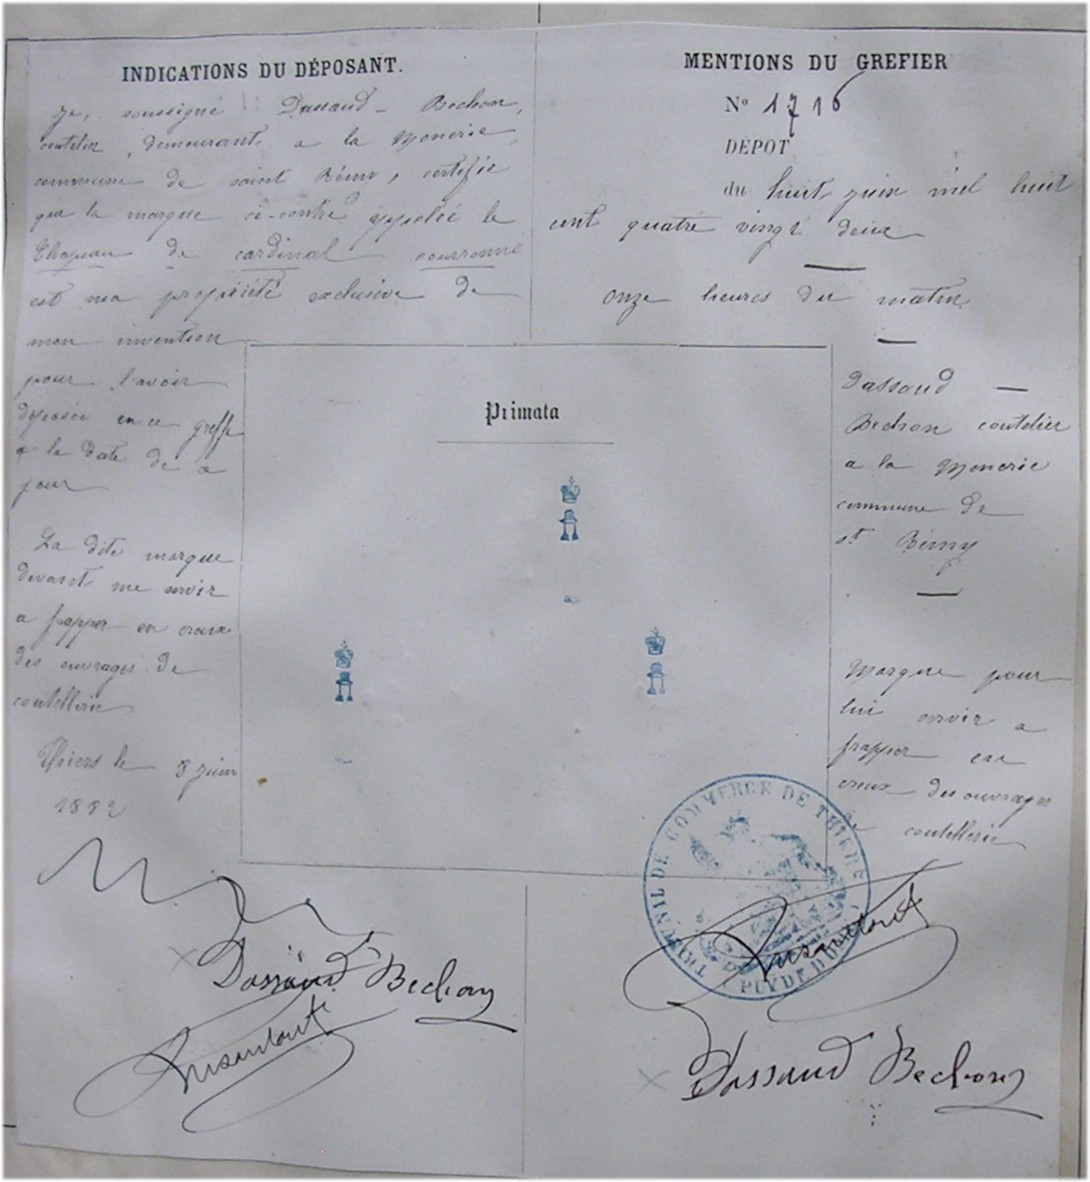 INDICATIONS DU DÉPOSANT.
Je, soussigné Dassaud - Bechon,
coutelier, demeurant a la Monerie
commune de saint Rémy, certifie
que la marque ci-contre appelée le
Chapeau de cardinal couronné
est ma propriété exclusive de
mon invention
pour l'avoir
déposée en ce greffe
a la date de ce
jour
La dite marque
devant me servir
a frapper en creux
des ouvrages de
coutellerie
Thiers le 8 juin
1882
Dassaud Bechon
MENTIONS DU GREFIER
N° 1716
DÉPOT
du huit juin mil huit
cent quatre vingt deux
onze heures du matin
Dassaud —
Bechon coutelier
a la Monerie
commune de
st Rémy
Marque pour
lui servir a
frapper en
creux des ouvrages
de coutellerie
Primata
TRIBUNIL DE COMMERCE DE THIERS
PUY DE DOME
Dassaud Bechon